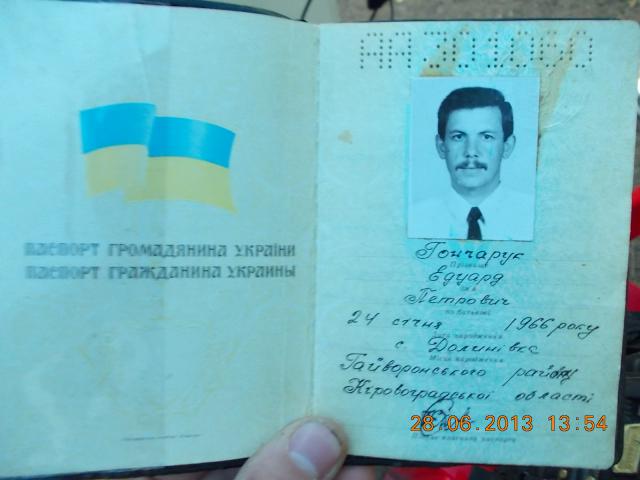 ПАСПОРТ ГРОМАДЯНИНА УКРАЇНИ
ПАСПОРТ ГРАЖДАНИНА УКРАИНЫ
Гончарук
Прізвище
Едуард
Ім'я
Петрович
По батькові
24 січня 1966 року
Дата народження
с Долинівка
Місце народження
Гайворонського району
Кіровоградської області
28.06.2013 13:54
Підпис власника паспорта